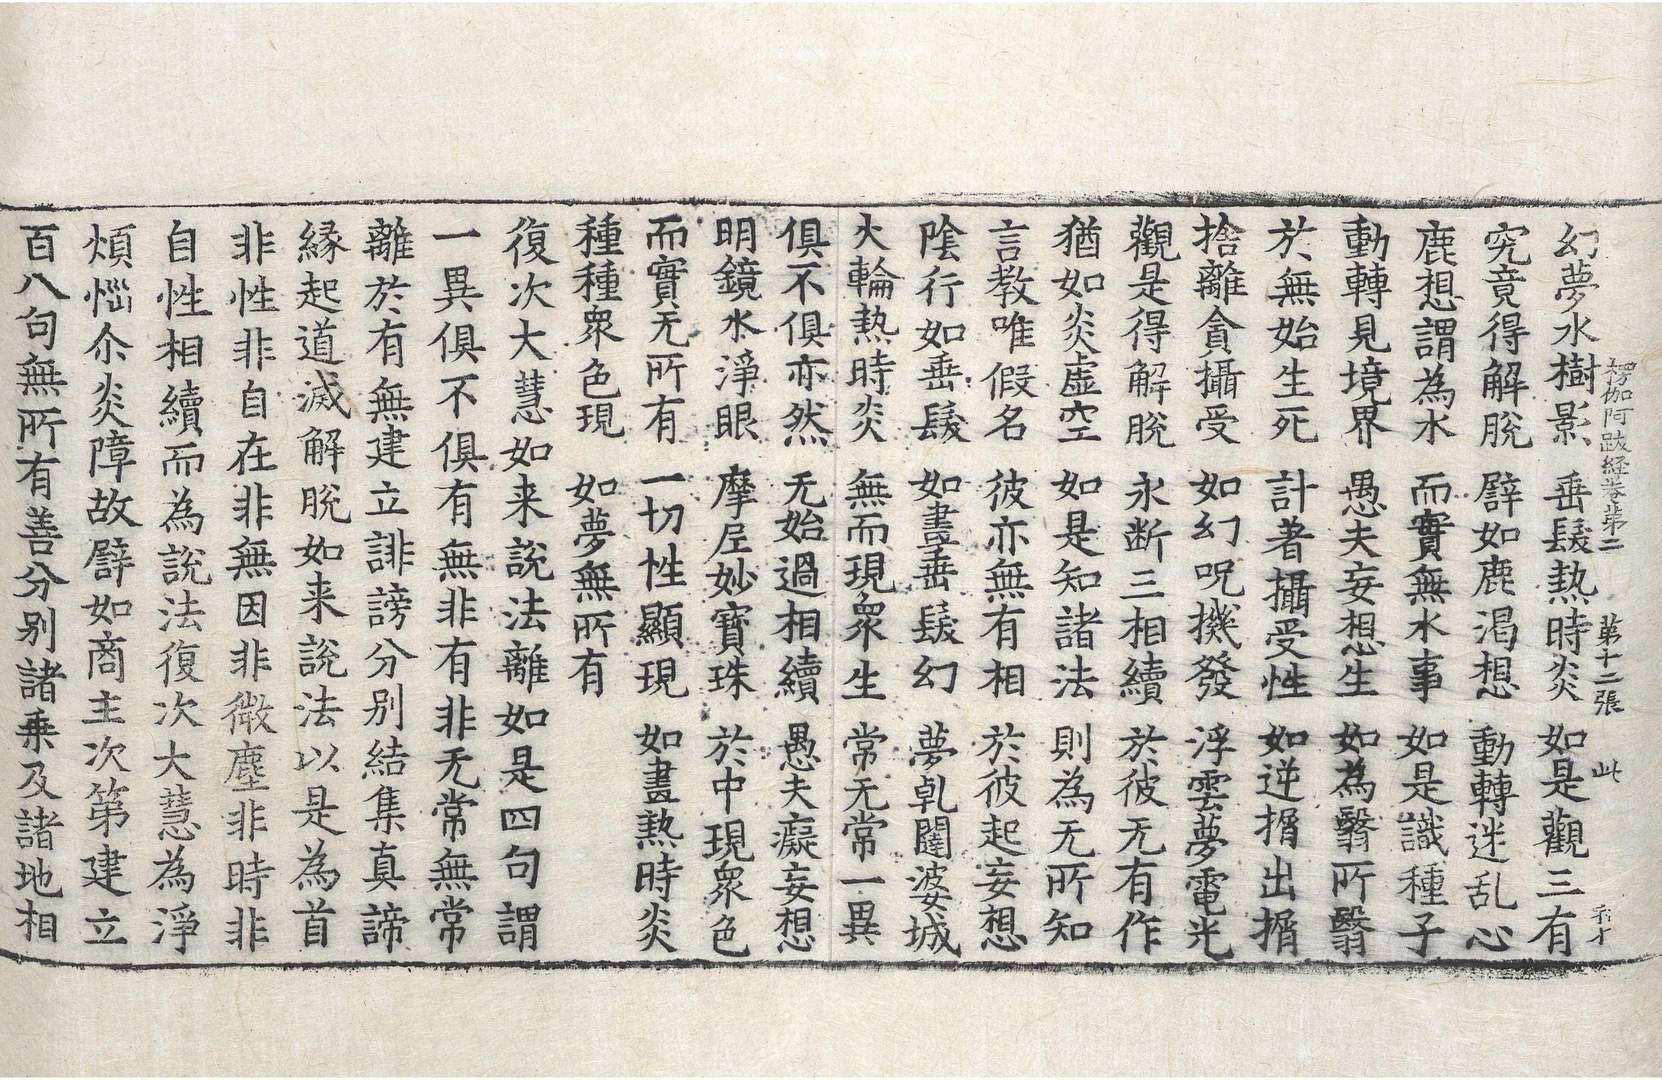 楞伽阿跋経卷第二 第十二張 此
幻夢水樹影 垂髮熱時炎 如是觀三有
究竟得解脫 譬如鹿渴想 動轉迷乱心
鹿想謂為水 而實無水事 如是識種子
動轉見境界 愚夫妄想生 如為翳所翳
於無始生死 計著攝受性 如逆揟出揟
捨離貪攝受 如幻呪機發 浮雲夢電光
觀是得解脫 永断三相續 於彼无有作
猶如炎虛空 如是知諸法 則為无所知
言教唯假名 彼亦無有相 於彼起妄想
陰行如垂髮 如畫垂髮幻 夢乹闥婆城
火輪熱時炎 無而現衆生 常无常一異
俱不俱亦然 无始過相續 愚夫癡妄想
明鏡水淨眼 摩尼妙寶珠 於中現衆色
而實无所有 一切性顯現 如畫熱時炎
種種衆色現 如夢無所有
復次大慧如来說法離如是四句謂
一異俱不俱有無非有非无常無常
離於有無建立誹謗分別結集真諦
緣起道滅解脫如来說法以是為首
非性非自在非無因非微塵非時非
自性相續而為說法復次大慧為淨
煩惱尒炎障故譬如商主次第建立
百八句無所有善分別諸乘及諸地相